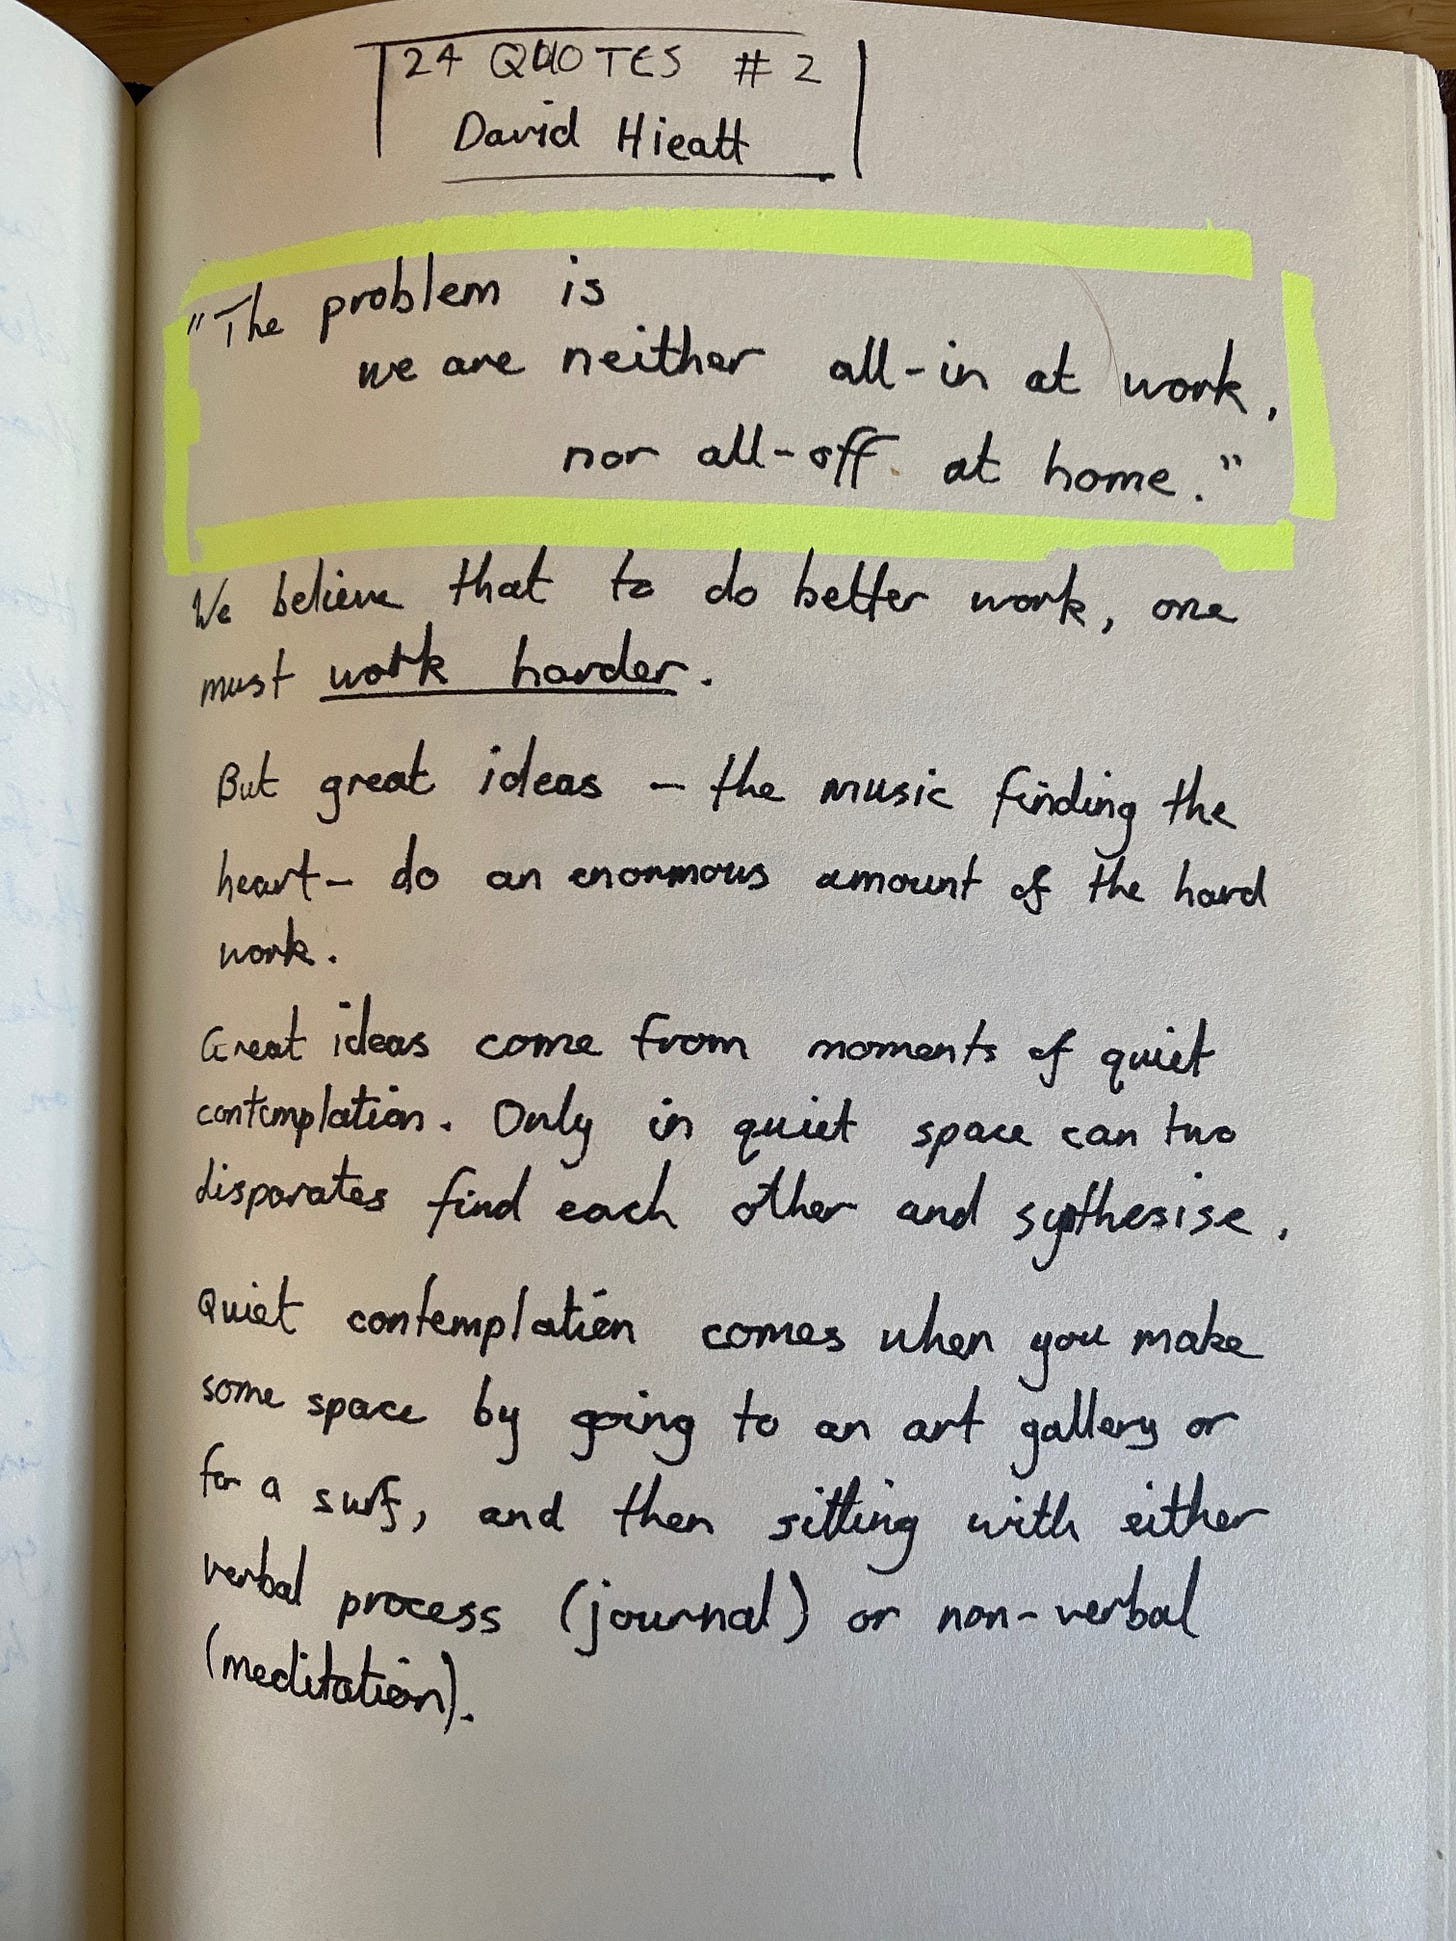 24 QUOTES #2
David Hieatt
"The problem is
we are neither all-in at work,
nor all-off at home."
We believe that to do better work, one
must work harder.
But great ideas – the music finding the
heart – do an enormous amount of the hard
work.
Great ideas come from moments of quiet
contemplation. Only in quiet space can two
disparates find each other and synthesise.
Quiet contemplation comes when you make
some space by going to an art gallery or
for a surf, and then sitting with either
verbal process (journal) or non-verbal
(meditation).